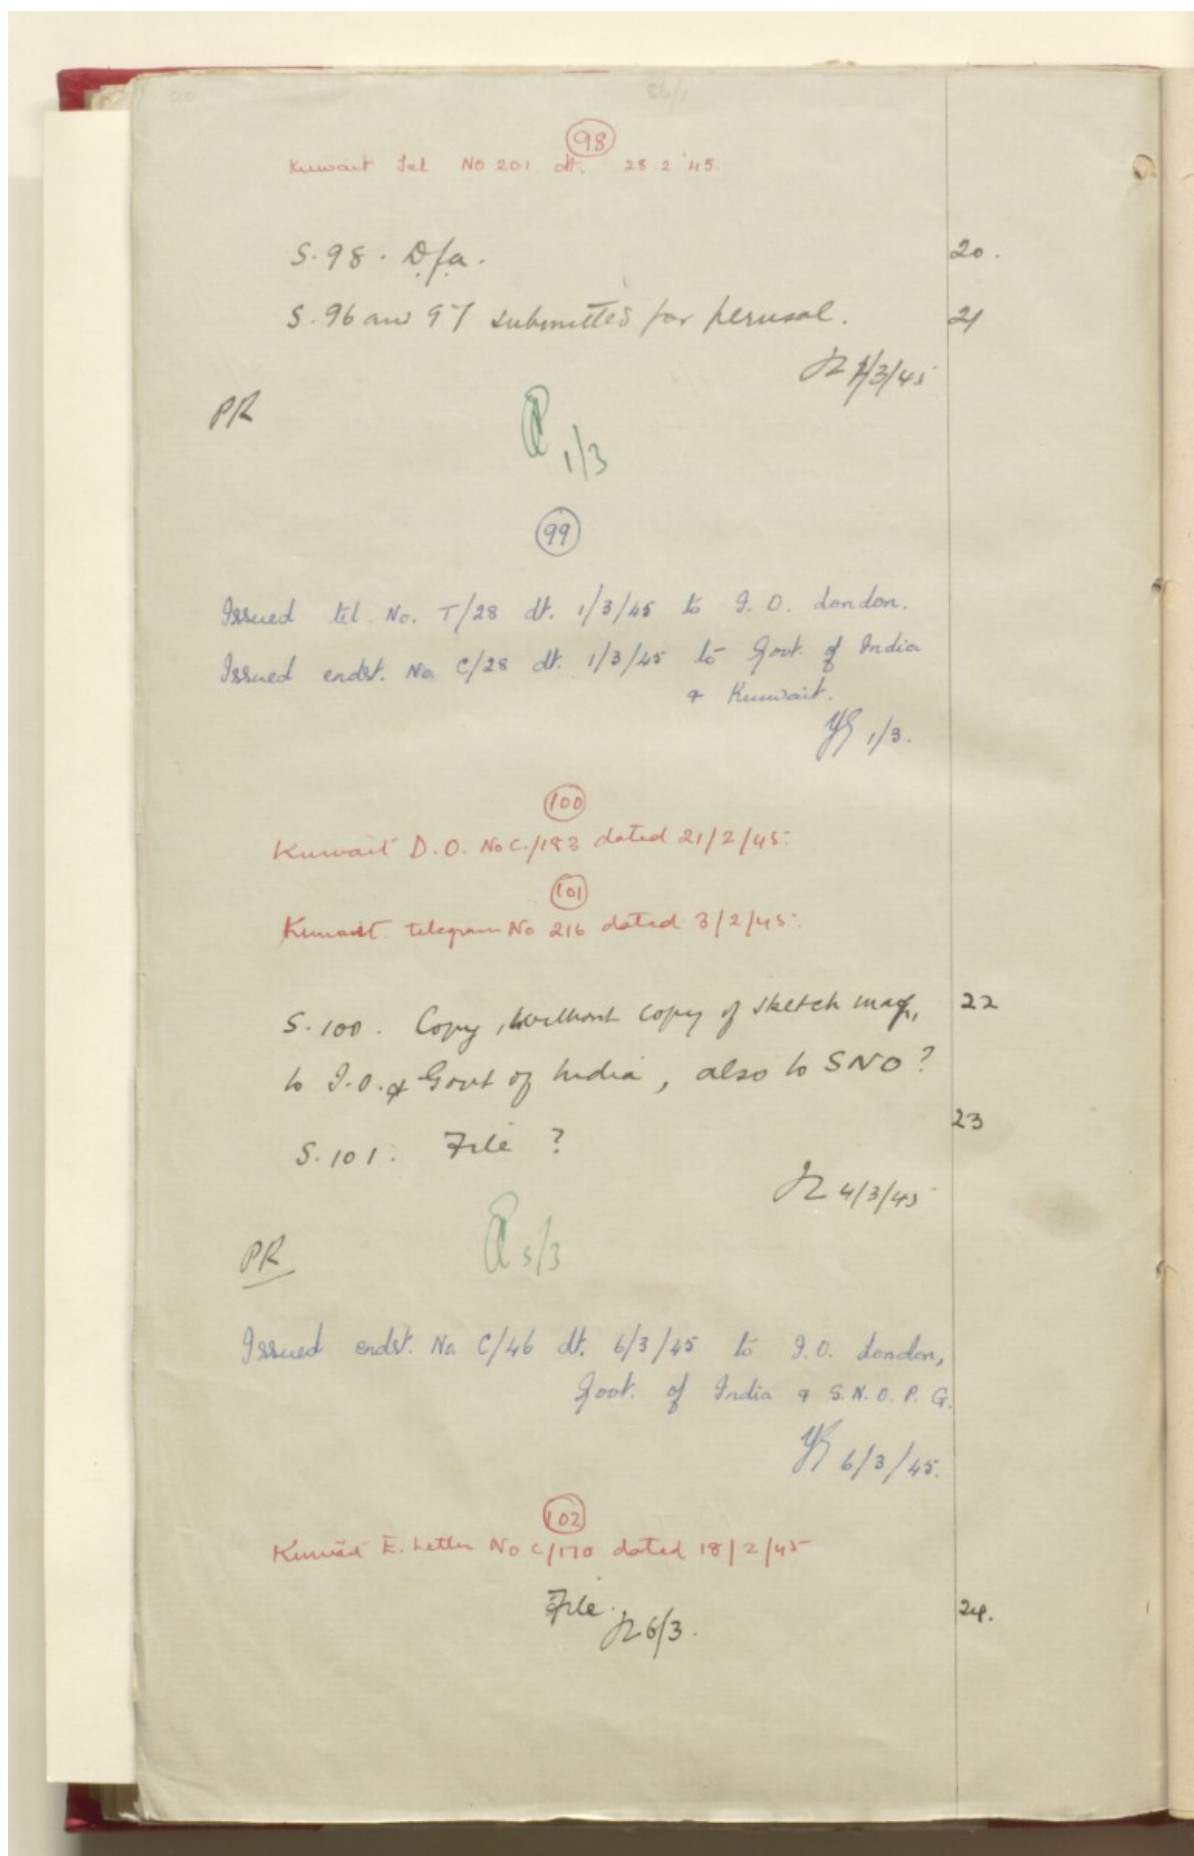 86/1
98
Kuwait Tel No 201 dt. 28.2.'45.
S.98. D.f.a. 20.
S.96 and 97 submitted for perusal. 21
1/3/45
PR
1/3
99
Issued tel. No. T/28 dt. 1/3/45 to I.O. London.
Issued endst. No. C/28 dt. 1/3/45 to Govt. of India
& Kuwait.
1/3.
100
Kuwait D.O. No C./183 dated 21/2/45.
101
Kuwait telegram No 216 dated 3/2/45.
S.100. Copy, without copy of sketch map, 22
to I.O. & Govt of India, also to SNO?
23
S.101. File ?
4/3/45
5/3
PR
Issued endst. No. C/46 dt. 6/3/45 to I.O. London,
Govt. of India & S.N.O.P.G.
6/3/45.
102
Kuwait E. Letter No C/170 dated 18/2/45
File. 24.
6/3.